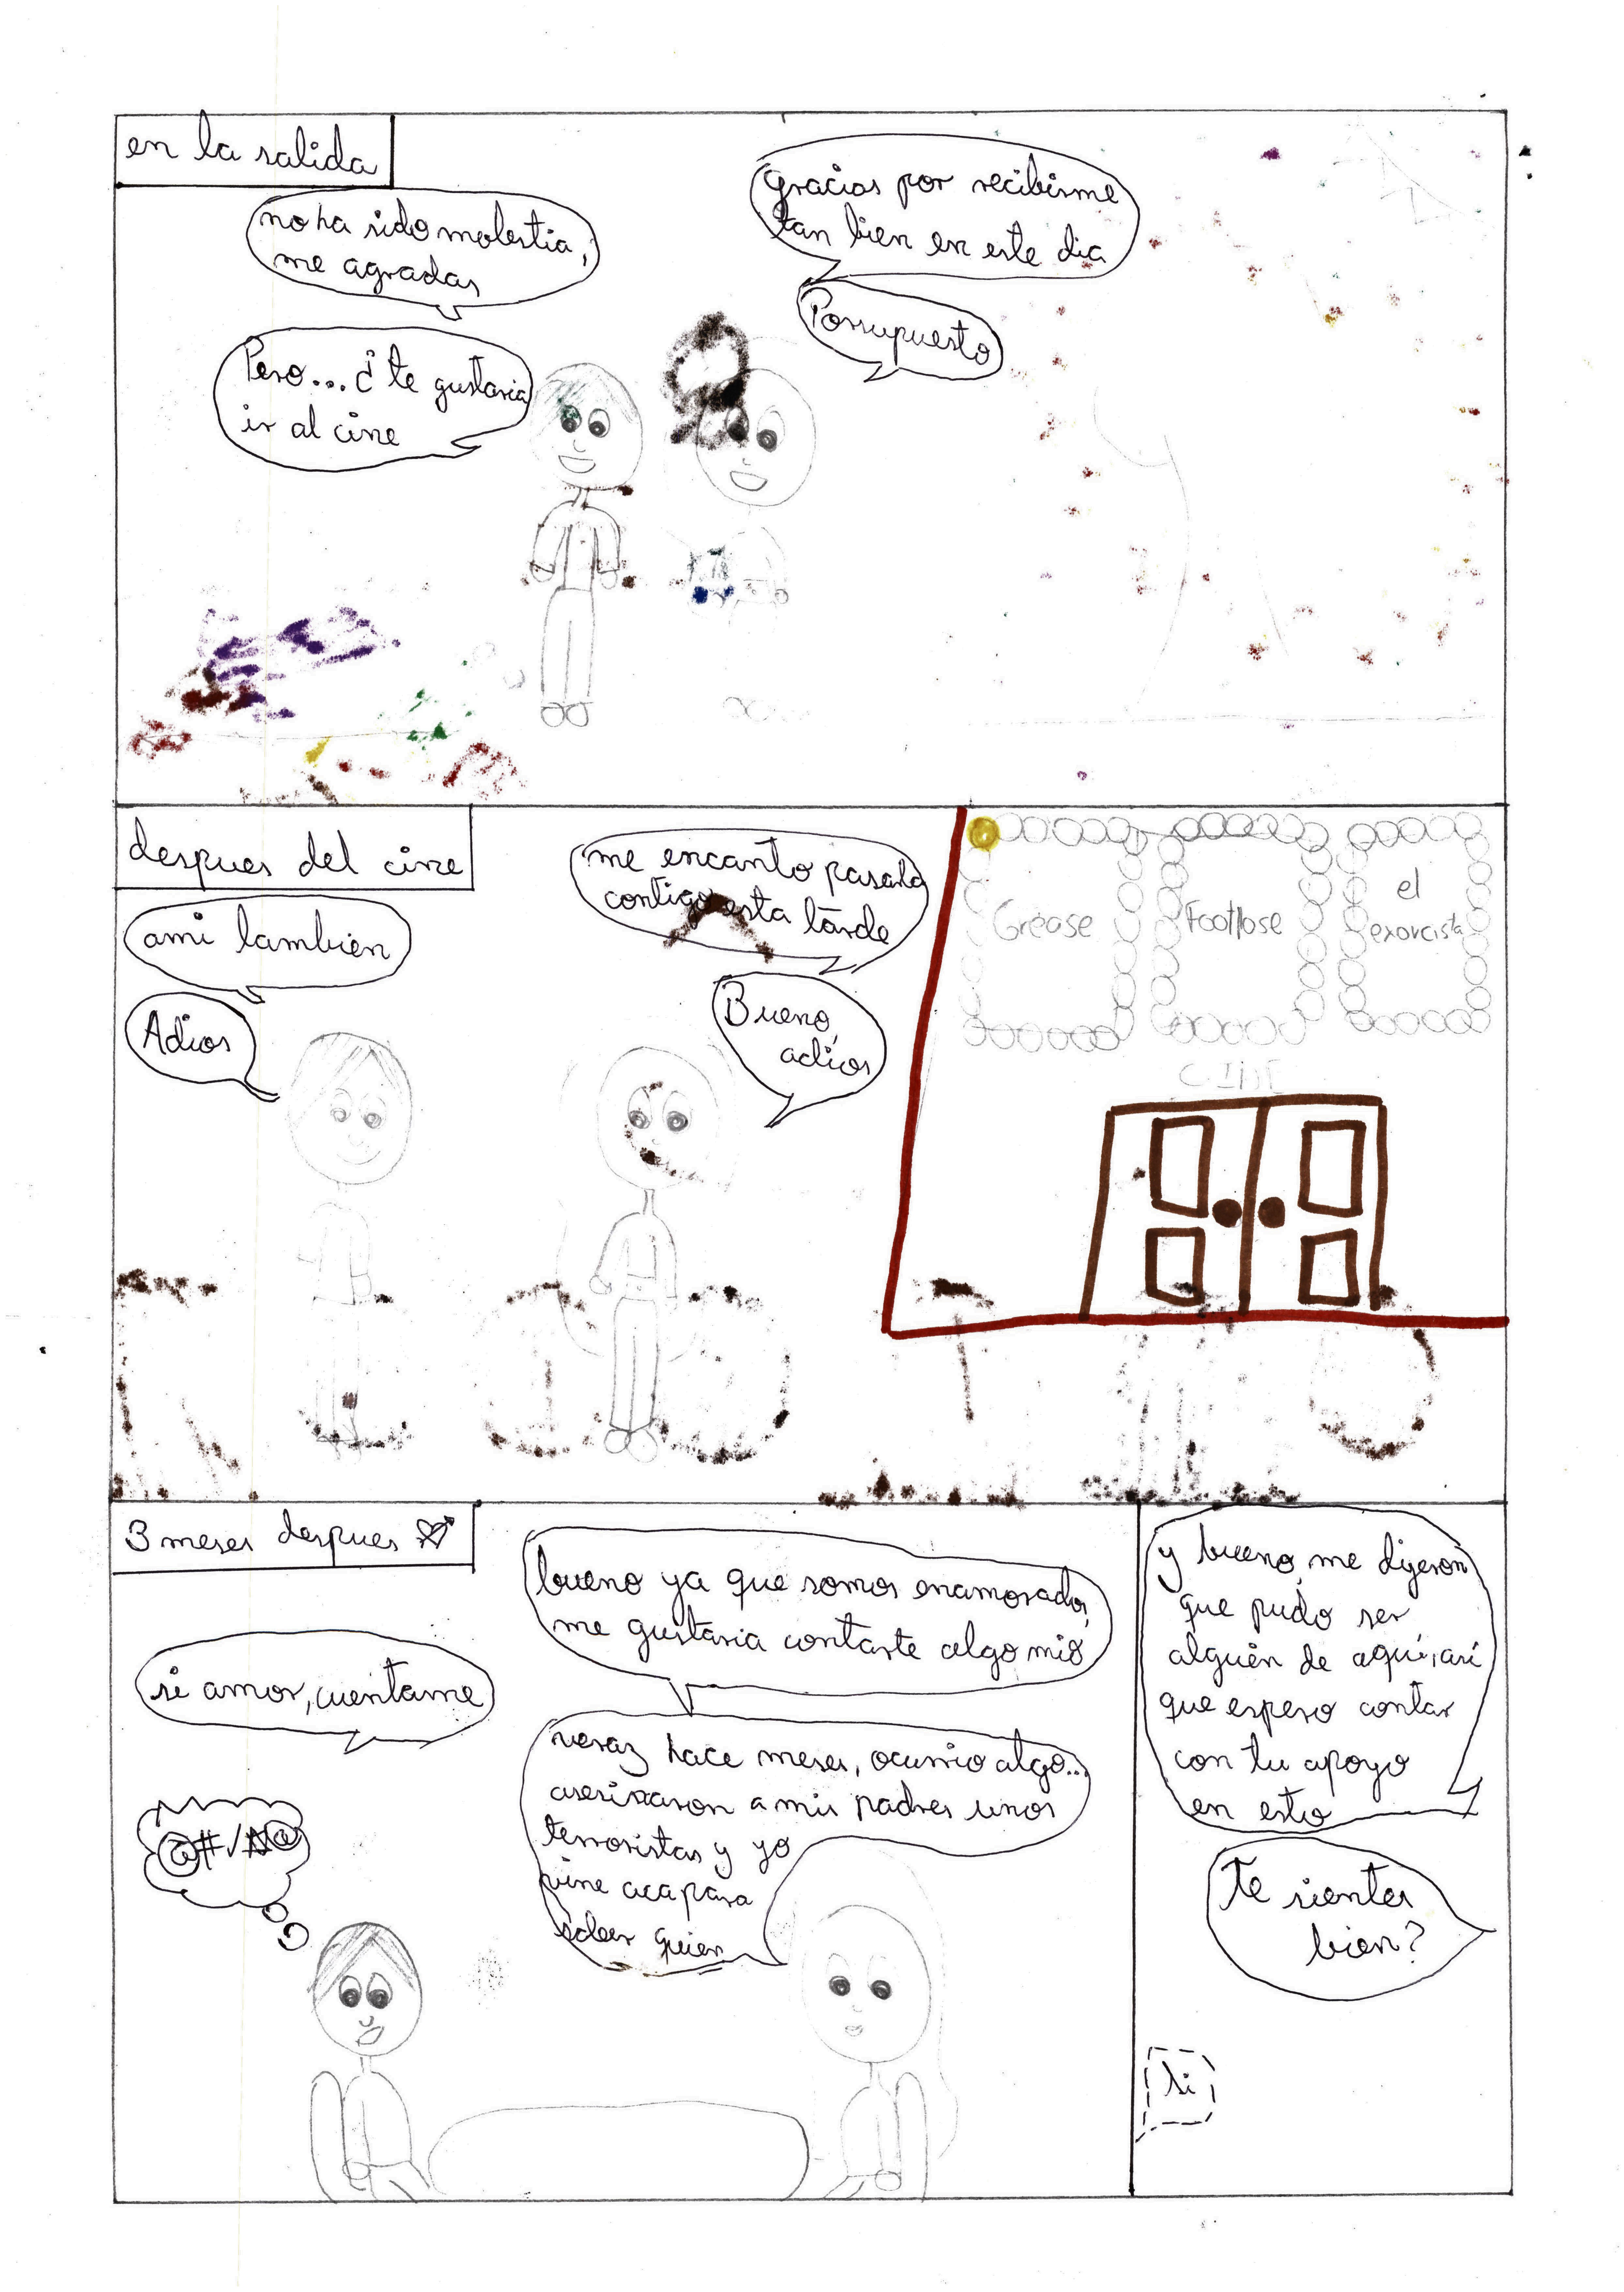 en la salida
gracias por recibirme
tan bien en este dia
no ha sido molestia,
me agradas
Pero... ¿te gustaria
ir al cine
Porsupuesto
despues del cine
me encanto pasarla
contigo esta tarde
ami tambien
Bueno,
adios
Adios
Grease
Footlose
el
exorcista
CINE
3 meses despues
bueno ya que somos enamorados,
me gustaria contarte algo mio
si amor, cuentame
veraz hace meses, ocurrio algo...
asesinaron a mis padres unos
terroristas y yo
vine aca para
saber quien
@#/&@
y bueno, me dijeron
que pudo ser
alguien de aqui, asi
que espero contar
con tu apoyo
en esto
te sientes
bien?
si